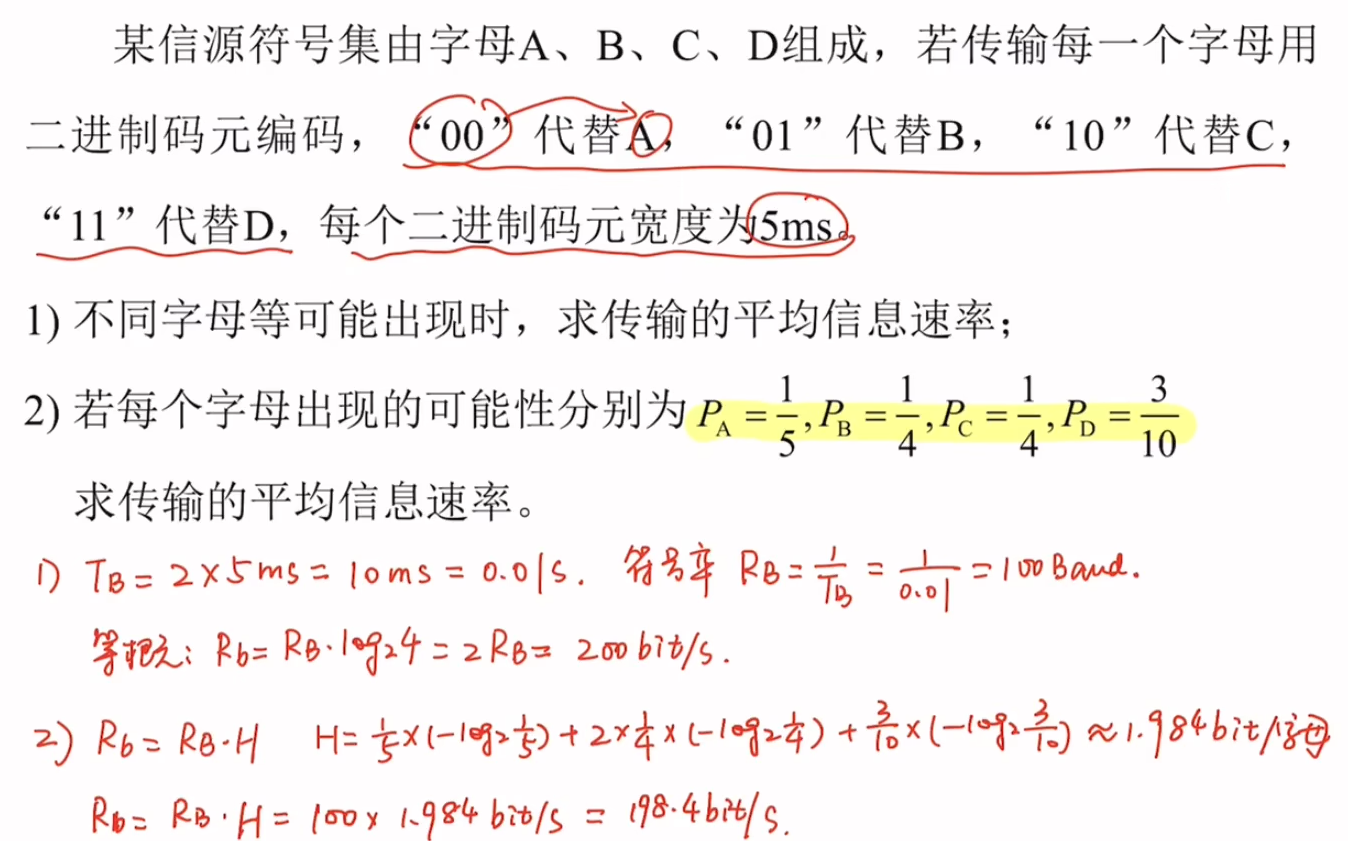 某信源符号集由字母A、B、C、D组成，若传输每一个字母用
二进制码元编码，“00”代替A，“01”代替B，“10”代替C，
“11”代替D，每个二进制码元宽度为5ms。
1) 不同字母等可能出现时，求传输的平均信息速率；
2) 若每个字母出现的可能性分别为 P_A = 1/5, P_B = 1/4, P_C = 1/4, P_D = 3/10
求传输的平均信息速率。
1) T_B = 2×5ms = 10ms = 0.01s. 符号率 R_B = 1/T_B = 1/0.01 = 100 Baud.
等概: R_b = R_B·log₂4 = 2R_B = 200 bit/s.
2) R_b = R_B·H H = 1/5×(-log₂1/5) + 2×1/4×(-log₂1/4) + 3/10×(-log₂3/10) ≈ 1.984 bit/字母
R_b = R_B·H = 100×1.984 bit/s = 198.4 bit/s.